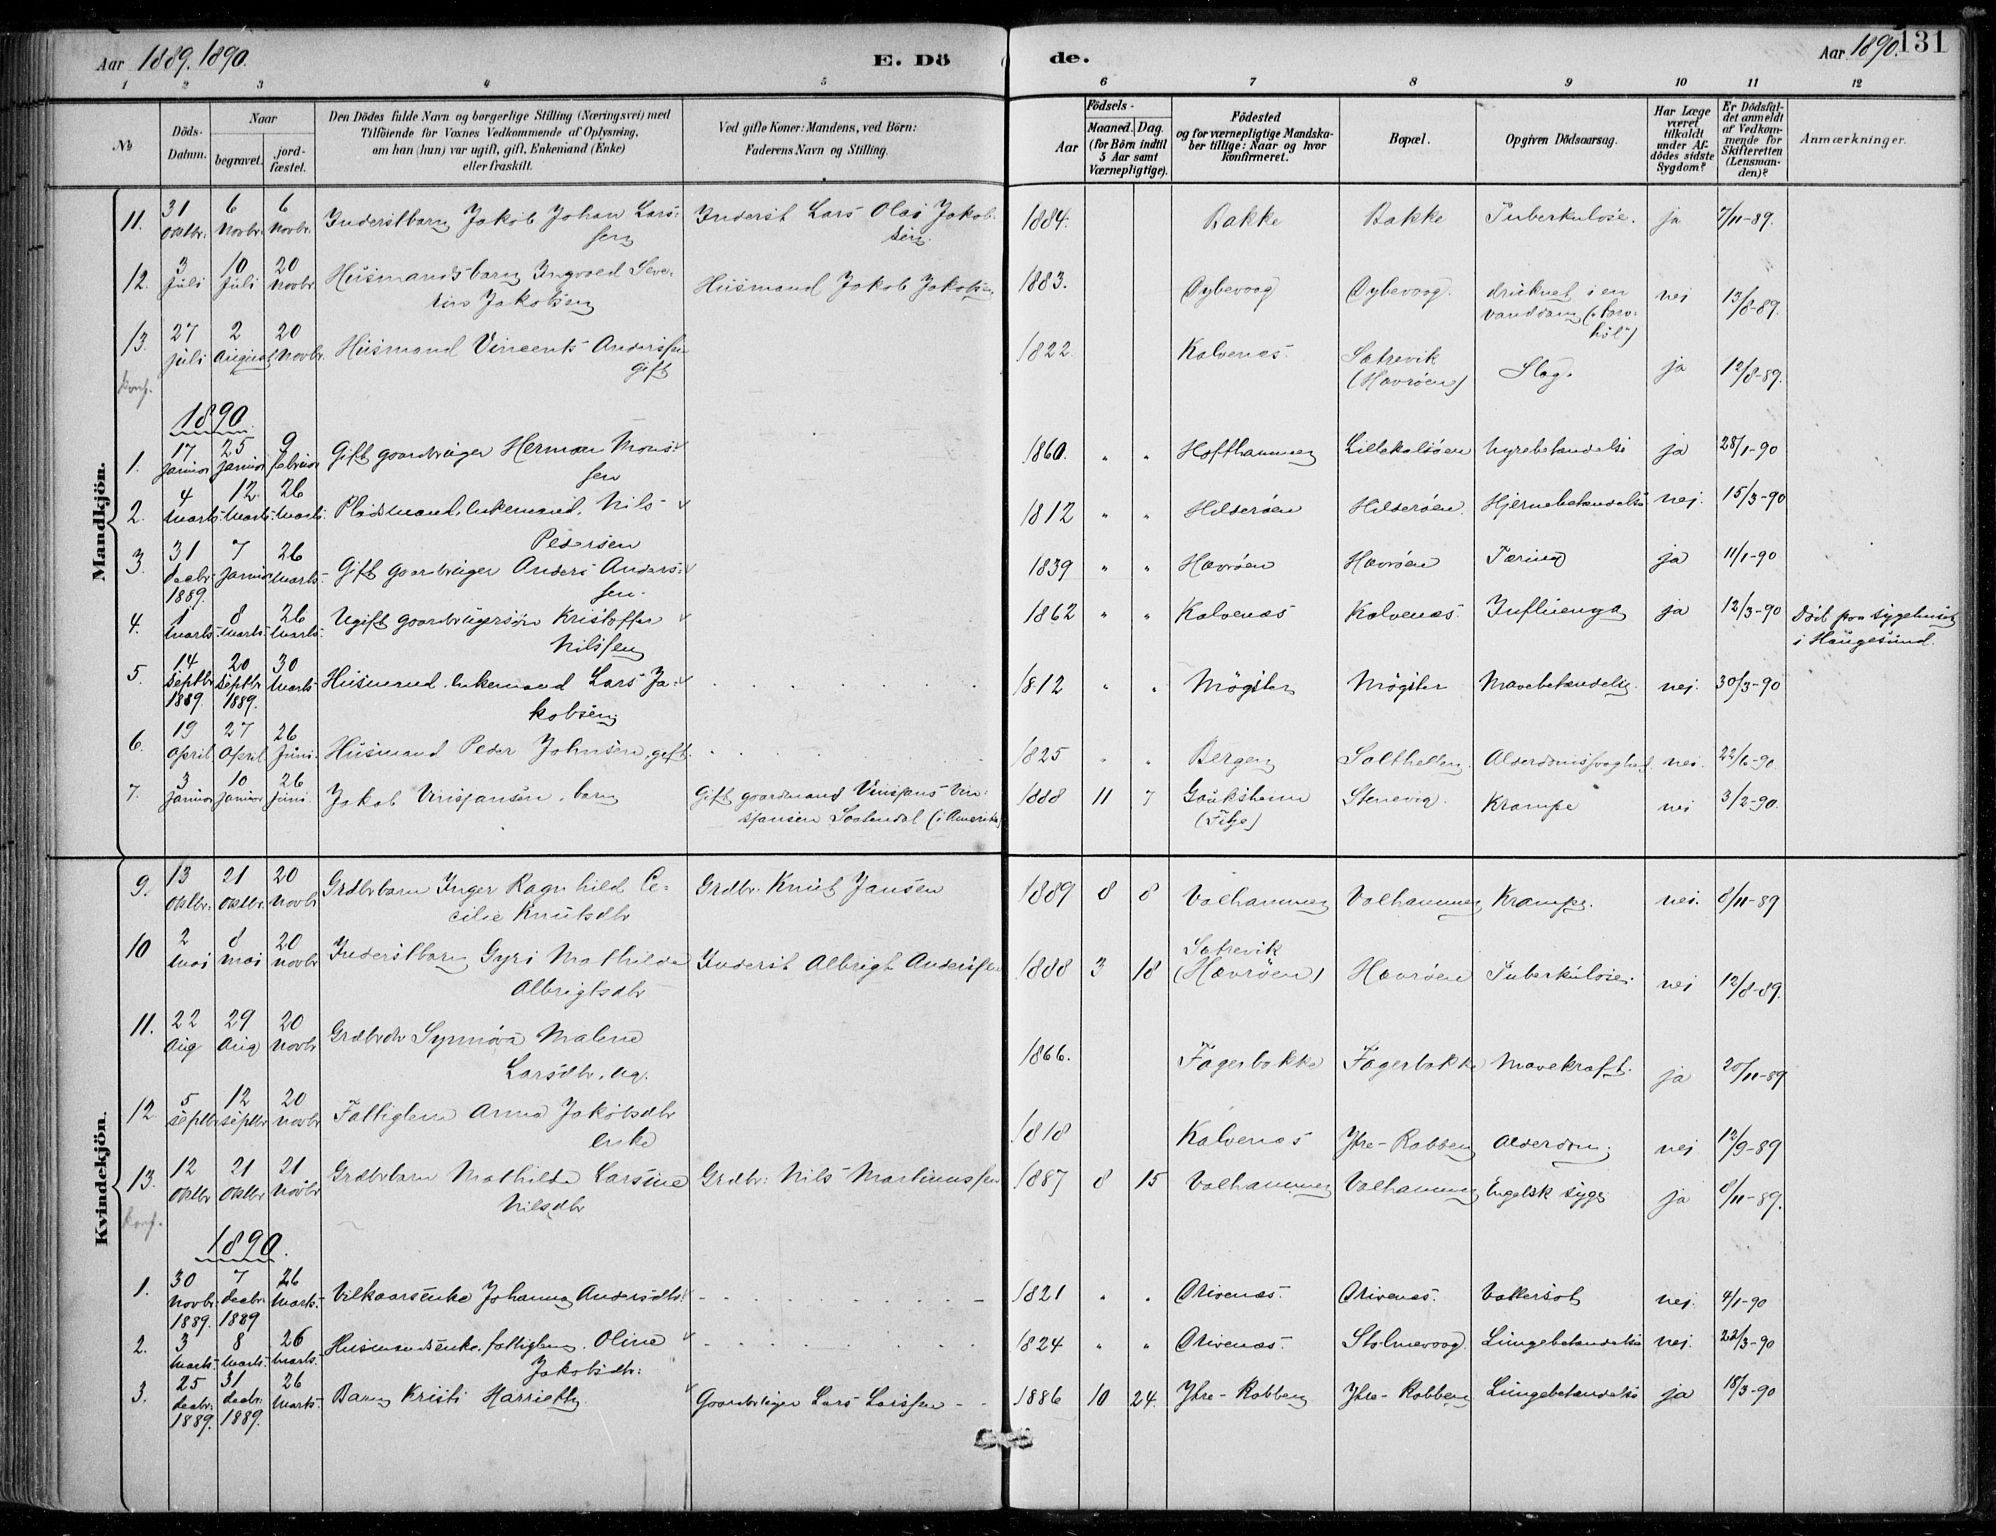 Aar 1889. 1890.
E. Dö
de.
Aar 1890.
131
1 2 3 4 5 6 7 8 9 10 11 12
No
Döds-
Datum.
Naar
begravet.
jord-
fæstet.
Den Dödes fulde Navn og borgerlige Stilling (Næringsvei) med
Tilföiende for Voxnes Vedkommende af Oplysning,
om han (hun) var ugift, gift, Enkemand (Enke)
eller fraskilt.
Ved gifte Koner: Mandens, ved Börn:
Faderens Navn og Stilling.
Födsels-
Aar
Maaned. Dag.
(for Börn indtil
5 Aar samt
Værnepligtige).
Födested
og for værnepligtige Mandska-
ber tillige: Naar og hvor
konfirmeret.
Bopæl.
Opgiven Dödsaarsag.
Har Læge
været
tilkaldt
under Af-
dödes sidste
Sygdom?
Er Dödsfal-
det anmeldt
af Vedkom-
mende for
Skifteretten
(Lensman-
den)?
Anmærkninger.
Mandkjön.
11. 31 oktbr. 6 novbr. 6 novbr. Inderstbarn Jakob Johan Lars-
sen
Inderst Lars Olai Jakob-
sen.
1884. Bakke Bakke Tuberkulose. ja 7/11-89.
12. 3 juli 10 juli 20 novbr. Husmandsbarn Ingvald Seve-
rin Jakobsen
Husmand Jakob Jakobsen
1883. Dybevaag Dybevaag. druknet i en
vanddam
nej 13/8-89.
13. 27 juli 2 august 20 novbr. Husmand Vincents Anderssen
gift
1822. Kalvenæs. Sætrevik
(Havröen)
Slag. ja 12/8-89.
1890.
1. 17 januar 25 januar 9 februar Gift gaardbruger Herman Mons-
sen
1860. " " Hofthammer Lillekalsöen Nyrebetændelse ja 28/1-90
2. 4 marts 12. marts 26 marts. Pladsmand, enkemand, Nils
Pedersen
1812 " " Hilderöen Hilderöen. Hjernebetændelse nej. 15/3-90
3. 31 decbr. 1889. 7 januar 26 marts. Gift gaardbruger Anders Anders-
sen.
1839 " " Hævröen Hævröen Tæring ja 11/1-90
4. 1 marts 8 marts 26 marts. Ugift gaardbrugersön Kristoffer
Nilssen
1862 " " Kalvenæs Kalvenæs. Influenza ja 12/3-90 Död paa sygehuset
i Haugesund.
5. 14 septbr. 1889. 20 septbr. 1889. 30 marts Husmand, enkemand Lars Ja-
kobsen.
1812 " " Mögster Mögster Mavebetændelse. nej. 30/3-90
6. 19 april 27 april 26 juni. Husmand Peder Johnsen, gift.
1825 " " Bergen Salthellen. Alderdomssvaghed nei. 22/6-90.
7. 3 januar 10 januar 26 juni. Jakob Vinsjansen, barn
Gift gaardmand Vinsjans Vin-
sjansen Laatendal (i Amerika)
1888 11 7 Gauksheim
(Fitje)
Stenevig. Krampe nei 3/2-90.
Kvindekjön.
9. 13 oktbr. 21 oktbr. 20 novbr Grdbrbarn Inger Ragnhild Ce-
cilie Knutsdtr
Grdbr. Knut Jansen
1889 8 8 Valhammer Valhammer Krampe. nei. 8/11-89
10 2 mai 8 mai 20 novbr Inderstbarn Gyri Mathilda
Albrigtsdtr
Inderst Albrigt Anderssen
1888 3 18 Sætrevik
(Hævröen)
Hævröen Tuberkulose. nei 12/8-89.
11. 22 aug 29 aug 20 novbr Grdbrdtr Synnöva Malene
Larsdtr. ug.
1866. Fagerbakke Fagerbakke Mavekræft. ja 20/11-89
12. 5 septbr 12 septbr 20 novbr Fattiglem Anna Jakobsdtr
enke
1818 Kalvenæs Ytre-Rabben Alderdom. nej 12/9-89
13. 12 oktbr 21 oktbr 21 novbr Grdbrbarn Mathilde Larsine
Nilsdtr
Grdbr: Nils Martinussen
1887 8 15 Valhammer Valhammer Engelsk syge ja 8/11-89.
1890.
1. 30 novbr. 1889. 7 decbr. 1889 26 marts. Vilkaarsenke Johanna Andersdtr.
1821 " " Drivenæs. Drivenæs. Vattersot nej. 4/1-90
2. 3 marts. 8 marts. 26 marts. Husmandsenke, fattiglem. Oline
Jakobsdtr:
1824 " " Drivenæs. Stolmevaag. Lungebetændelse nej. 22/3-90
3. 25 decbr. 1889. 31 decbr. 1889. 26 marts. Barn Kristi Harriette.
Gaardbruger Lars Larssen
1886 10 24. Ytre-Rabben Ytre-Rabben Lungebetændelse ja 18/3-90